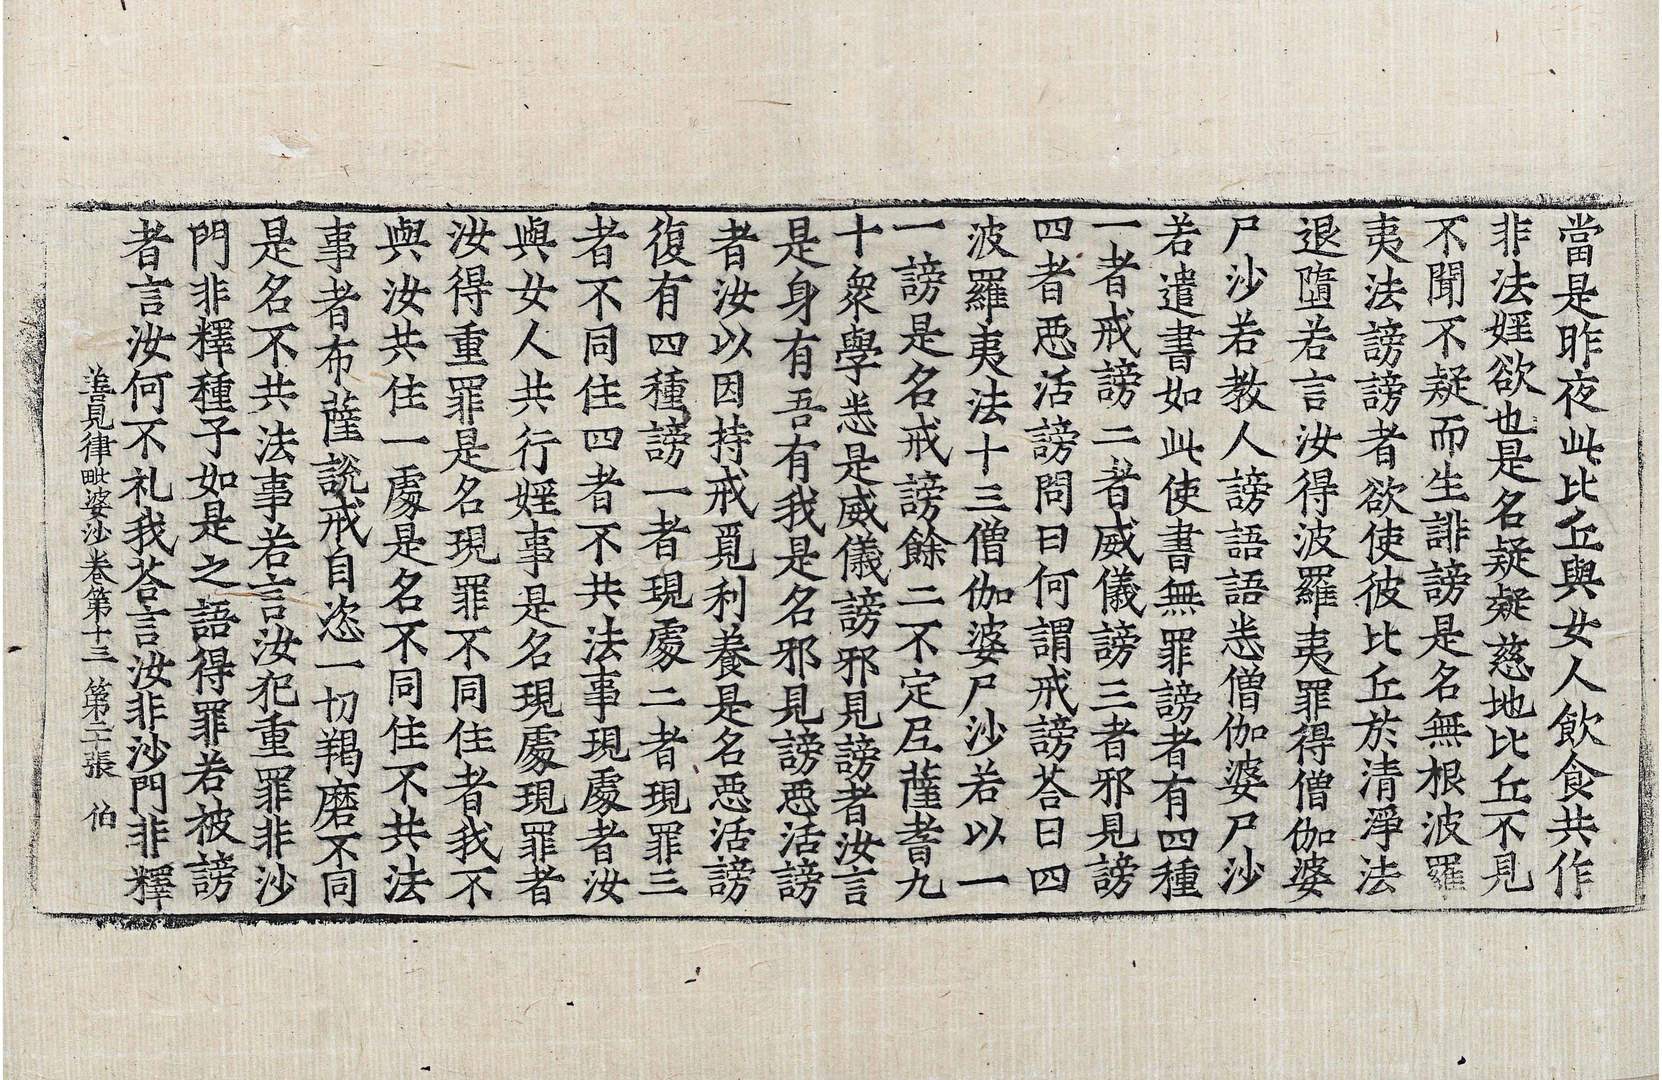 當是昨夜此比丘與女人飲食共作
非法婬欲也是名疑疑慈地比丘不見
不聞不疑而生誹謗是名無根波羅
夷法謗謗者欲使彼比丘於清淨法
退墮若言汝得波羅夷罪得僧伽婆
尸沙若教人謗語語悉僧伽婆尸沙
若遣書如此使書無罪謗者有四種
一者戒謗二者威儀謗三者邪見謗
四者惡活謗問曰何謂戒謗荅曰四
波羅夷法十三僧伽婆尸沙若以一
一謗是名戒謗餘二不定尼薩耆九
十衆學悉是威儀謗邪見謗者汝言
是身有吾有我是名邪見謗惡活謗
者汝以因持戒覓利養是名惡活謗
復有四種謗一者現處二者現罪三
者不同住四者不共法事現處者汝
與女人共行婬事是名現處現罪者
汝得重罪是名現罪不同住者我不
與汝共住一處是名不同住不共法
事者布薩說戒自恣一切羯磨不同
是名不共法事若言汝犯重罪非沙
門非釋種子如是之語得罪若被謗
者言汝何不礼我荅言汝非沙門非釋
善見律毗婆沙卷第十三 第二十張 伯